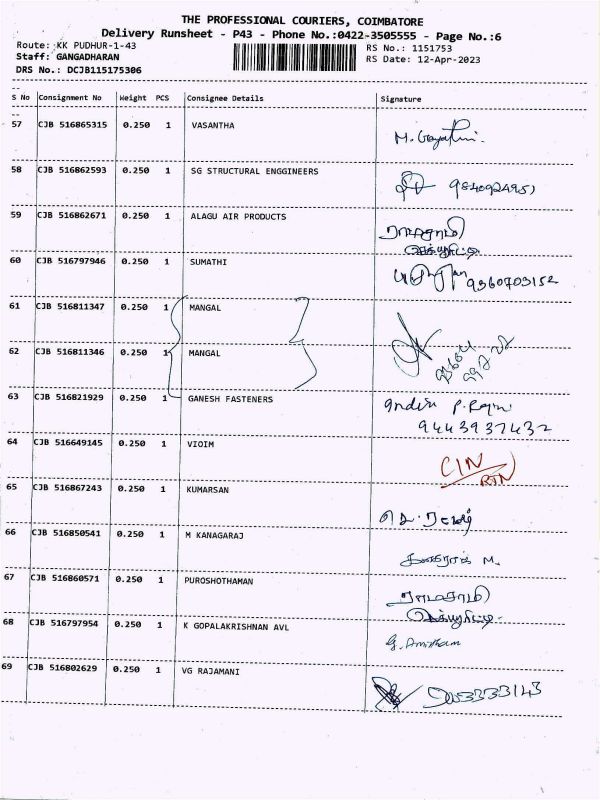 THE PROFESSIONAL COURIERS, COIMBATORE
Delivery Runsheet - P43 - Phone No.:0422-3505555 - Page No.:6
Route: KK PUDHUR-1-43 RS No.: 1151753
Staff: GANGADHARAN RS Date: 12-Apr-2023
DRS No.: DCJB115175306
S No Consignment No Weight PCS Consignee Details Signature
57 CJB 516865315 0.250 1 VASANTHA M. Gayathri.
58 CJB 516862593 0.250 1 SG STRUCTURAL ENGGINEERS
59 CJB 516862671 0.250 1 ALAGU AIR PRODUCTS ராமசாமி
செக்யூரிட்டி
60 CJB 516797946 0.250 1 SUMATHI 9360703152
61 CJB 516811347 0.250 1 MANGAL
62 CJB 516811346 0.250 1 MANGAL
63 CJB 516821929 0.250 1 GANESH FASTENERS
9443937432
64 CJB 516649145 0.250 1 VIOIM CIN
RTN
65 CJB 516867243 0.250 1 KUMARSAN
66 CJB 516850541 0.250 1 M KANAGARAJ கனகராஜ் M.
67 CJB 516860571 0.250 1 PUROSHOTHAMAN ராமசாமி
செக்யூரிட்டி
68 CJB 516797954 0.250 1 K GOPALAKRISHNAN AVL
69 CJB 516802629 0.250 1 VG RAJAMANI